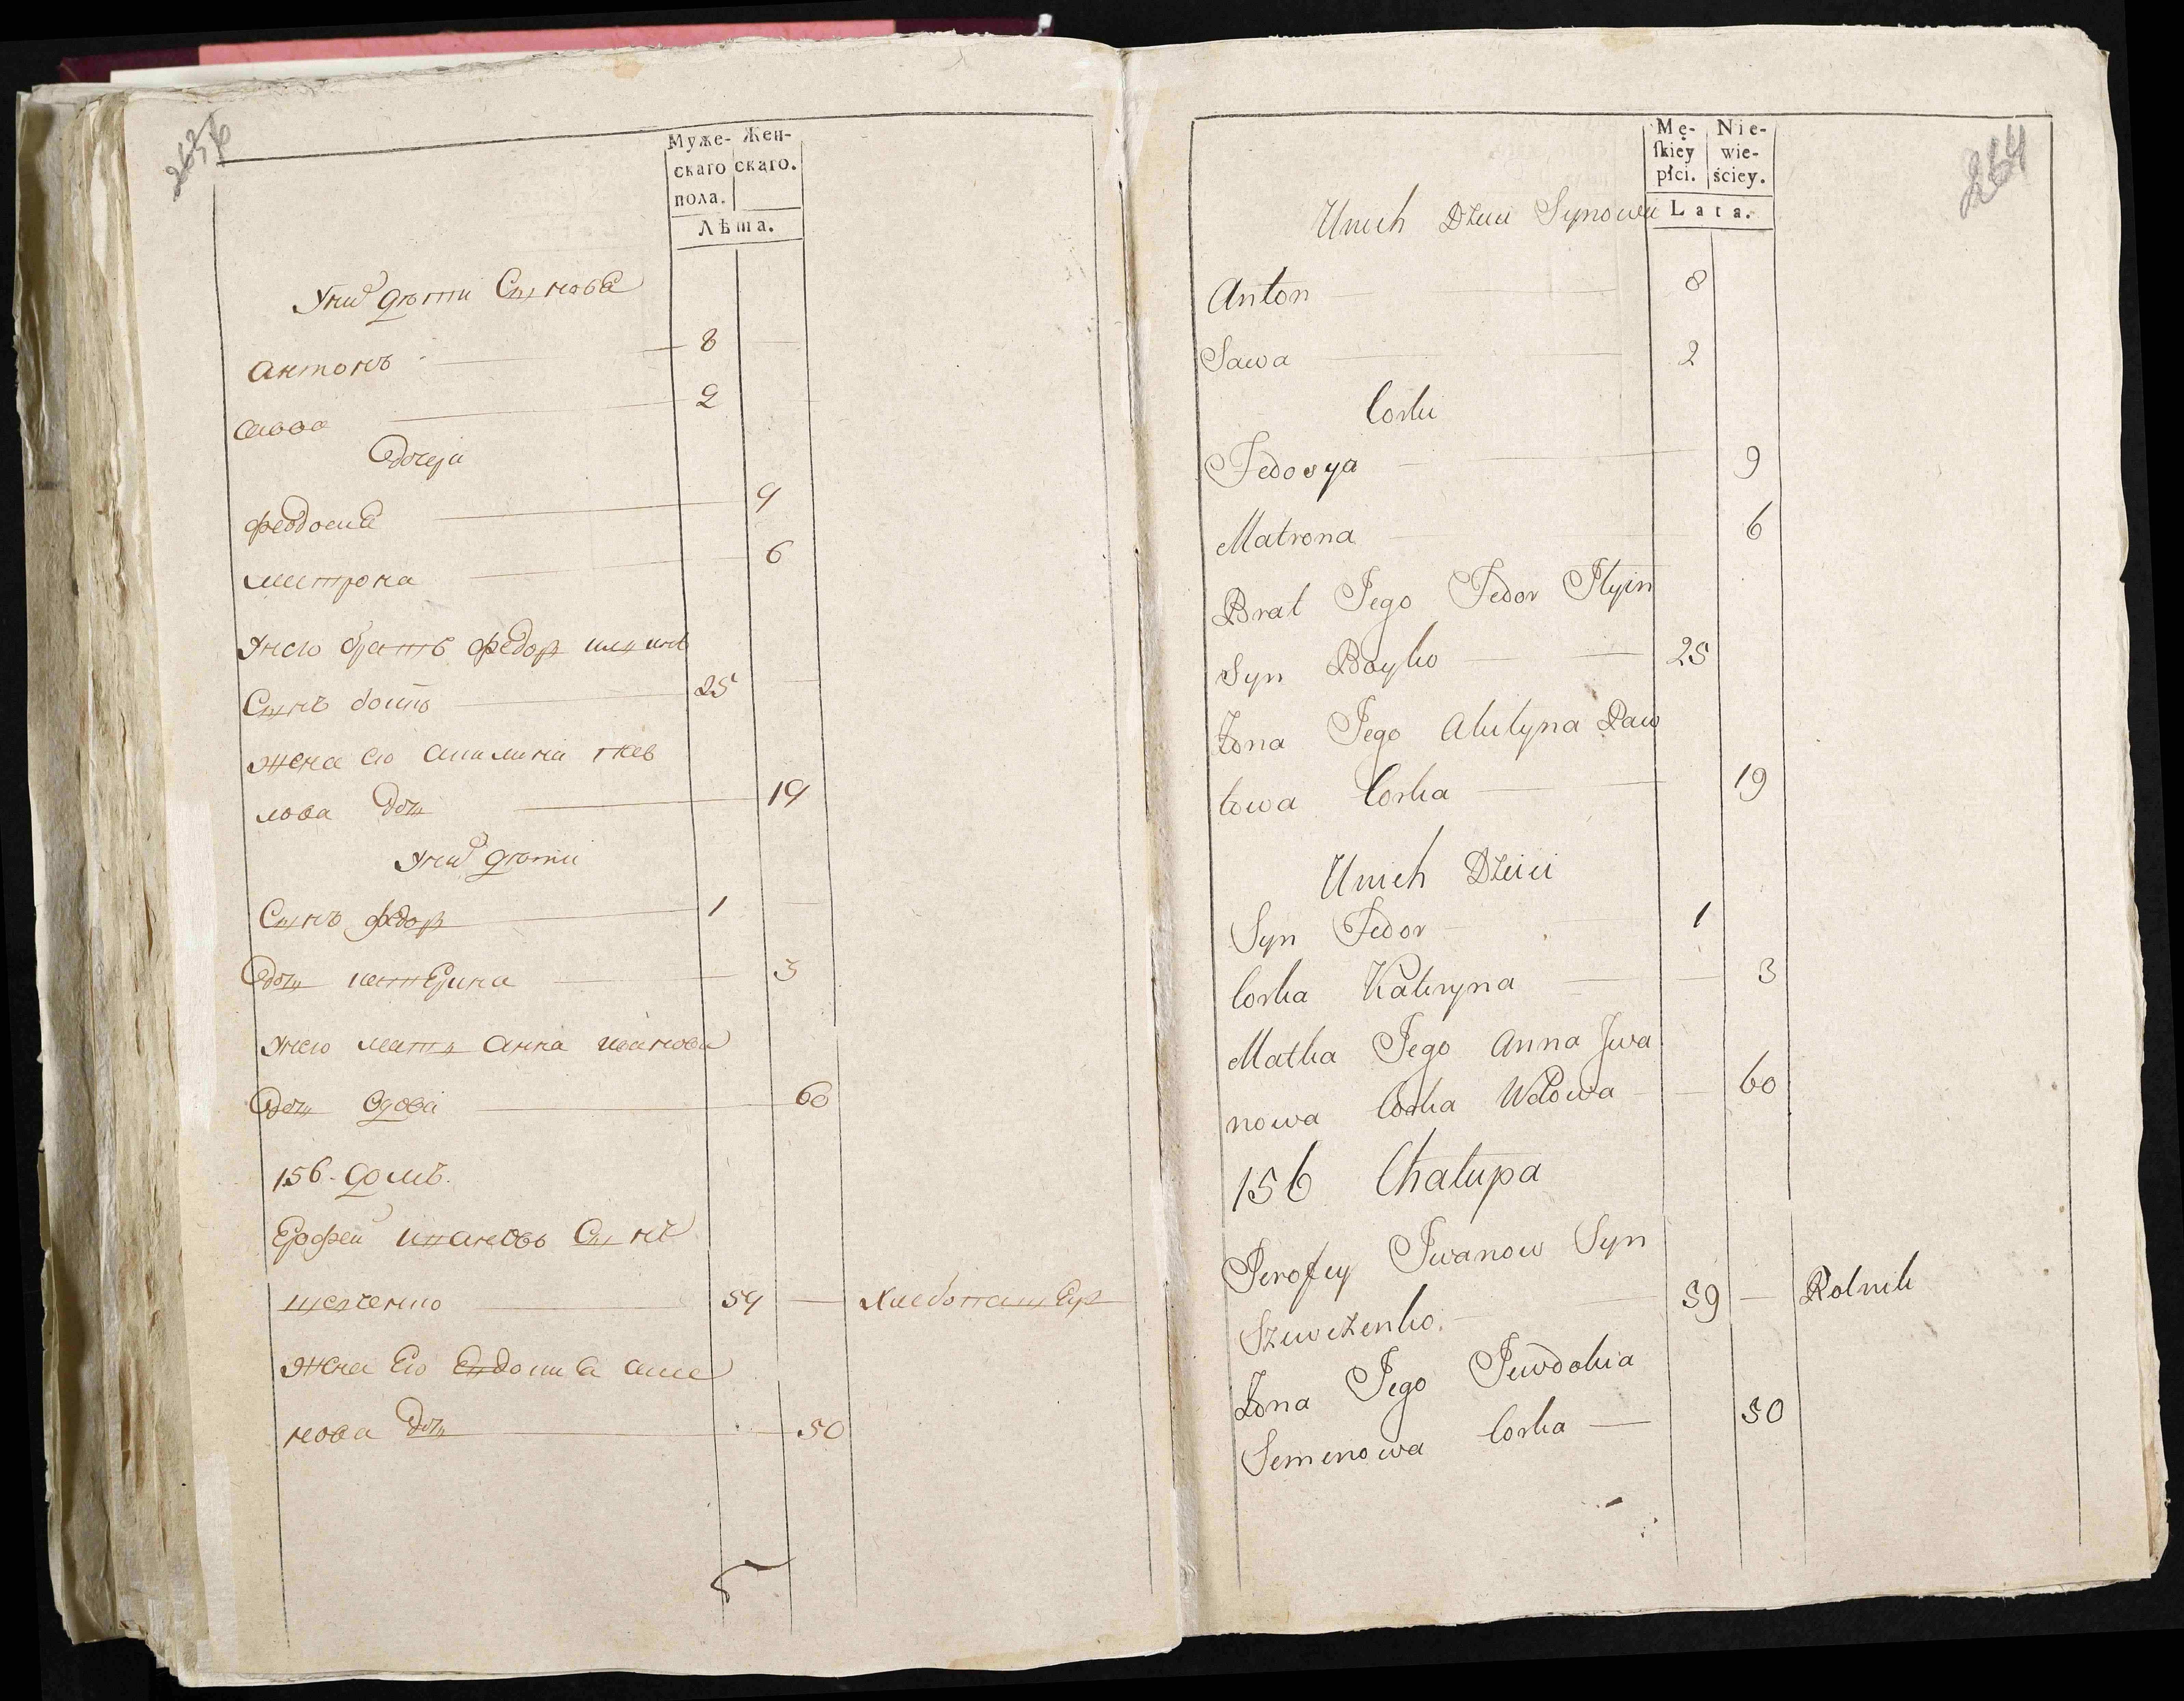 263
Муже- Жен-
скаго скаго.
пола.
Лѣта.
Унихъ дѣти Сынова
антонъ 8
савва 2
Дочери
феодосиа 9
матрона 6
Унего братъ федоръ ильинъ
Сынъ бойко 25
жена его акилина пав
лова дочь 19
Унихъ дѣти
Сынъ федоръ 1
дочь катерина 3
Унего мать анна иванова
дочь вдова 60
156. домъ.
Ерофей ивановъ Сынъ
шевченко 59 — Хлебопашецъ
жена Его Евдокиа симе
нова дочь 50
264
Mę- Nie-
ſkiey wie-
płci. ściey.
Lata.
Unich Dzieci Synowie
Anton 8
Sawa 2
Corki
Fedosya 9
Matrona 6
Brat Jego Fedor Ilyin
Syn Boyko 25
Żona Jego Akilyna Paw
łowa Corka 19
Unich Dzieci
Syn Fedor 1
Corka Kateryna 3
Matka Jego Anna Iwa
nowa Corka Wdowa 60
156 Chałupa
Jerofey Iwanow Syn
Szewczenko. 59 — Rolnik
Żona Jego Jewdokia
Semenowa Corka — 50